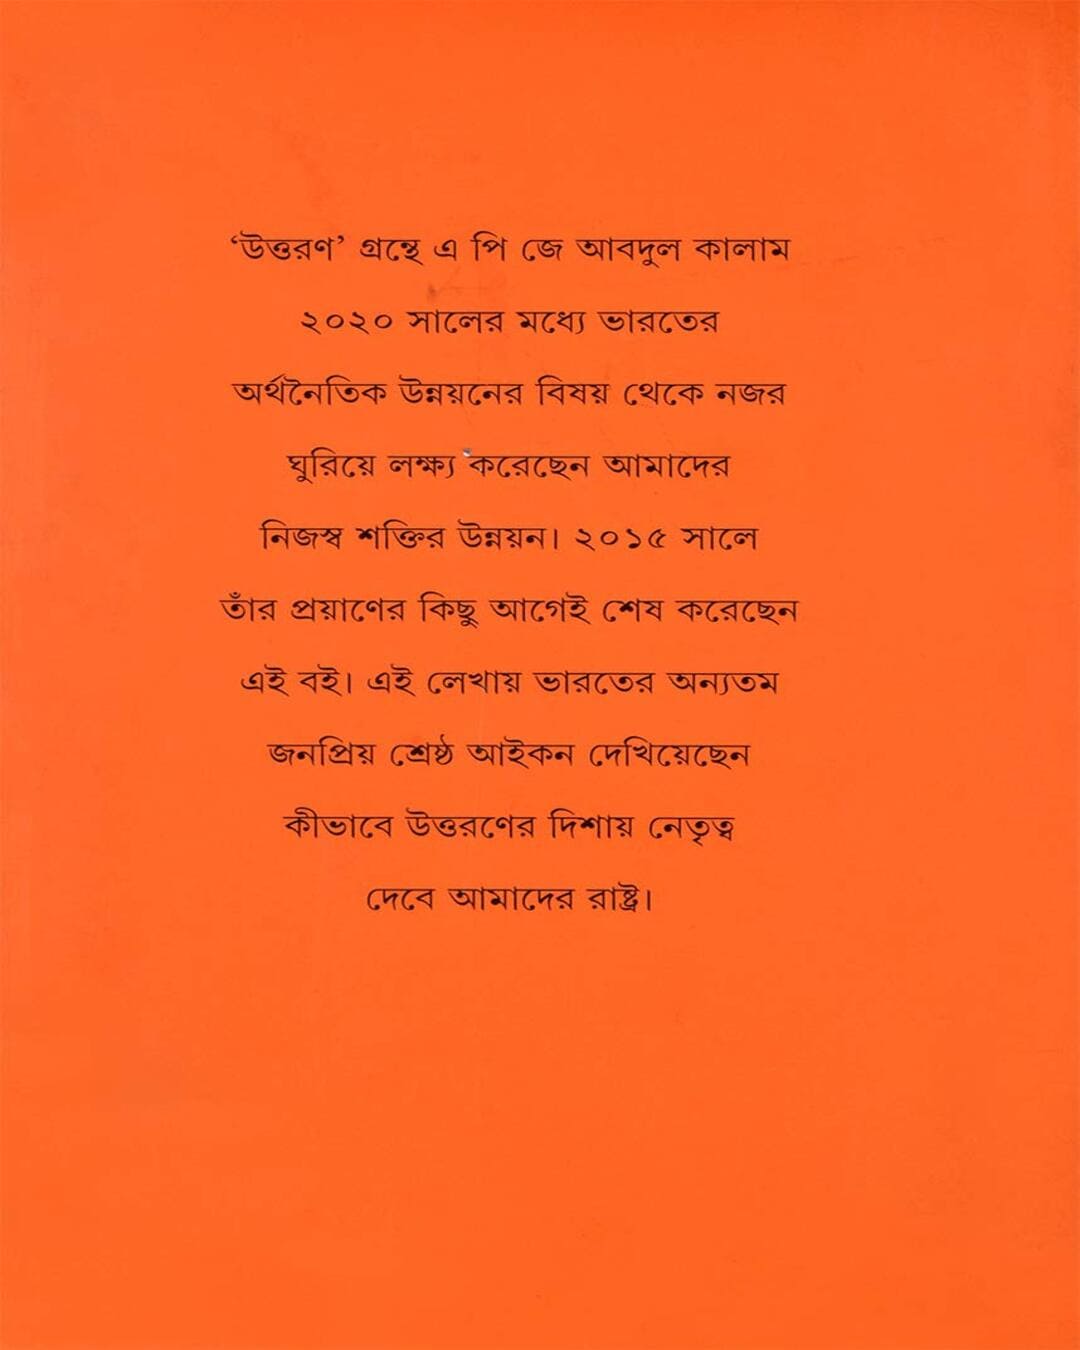 ‘উত্তরণ’ গ্রন্থে এ পি জে আবদুল কালাম
২০২০ সালের মধ্যে ভারতের
অর্থনৈতিক উন্নয়নের বিষয় থেকে নজর
ঘুরিয়ে লক্ষ্য করেছেন আমাদের
নিজস্ব শক্তির উন্নয়ন। ২০১৫ সালে
তাঁর প্রয়াণের কিছু আগেই শেষ করেছেন
এই বই। এই লেখায় ভারতের অন্যতম
জনপ্রিয় শ্রেষ্ঠ আইকন দেখিয়েছেন
কীভাবে উত্তরণের দিশায় নেতৃত্ব
দেবে আমাদের রাষ্ট্র।